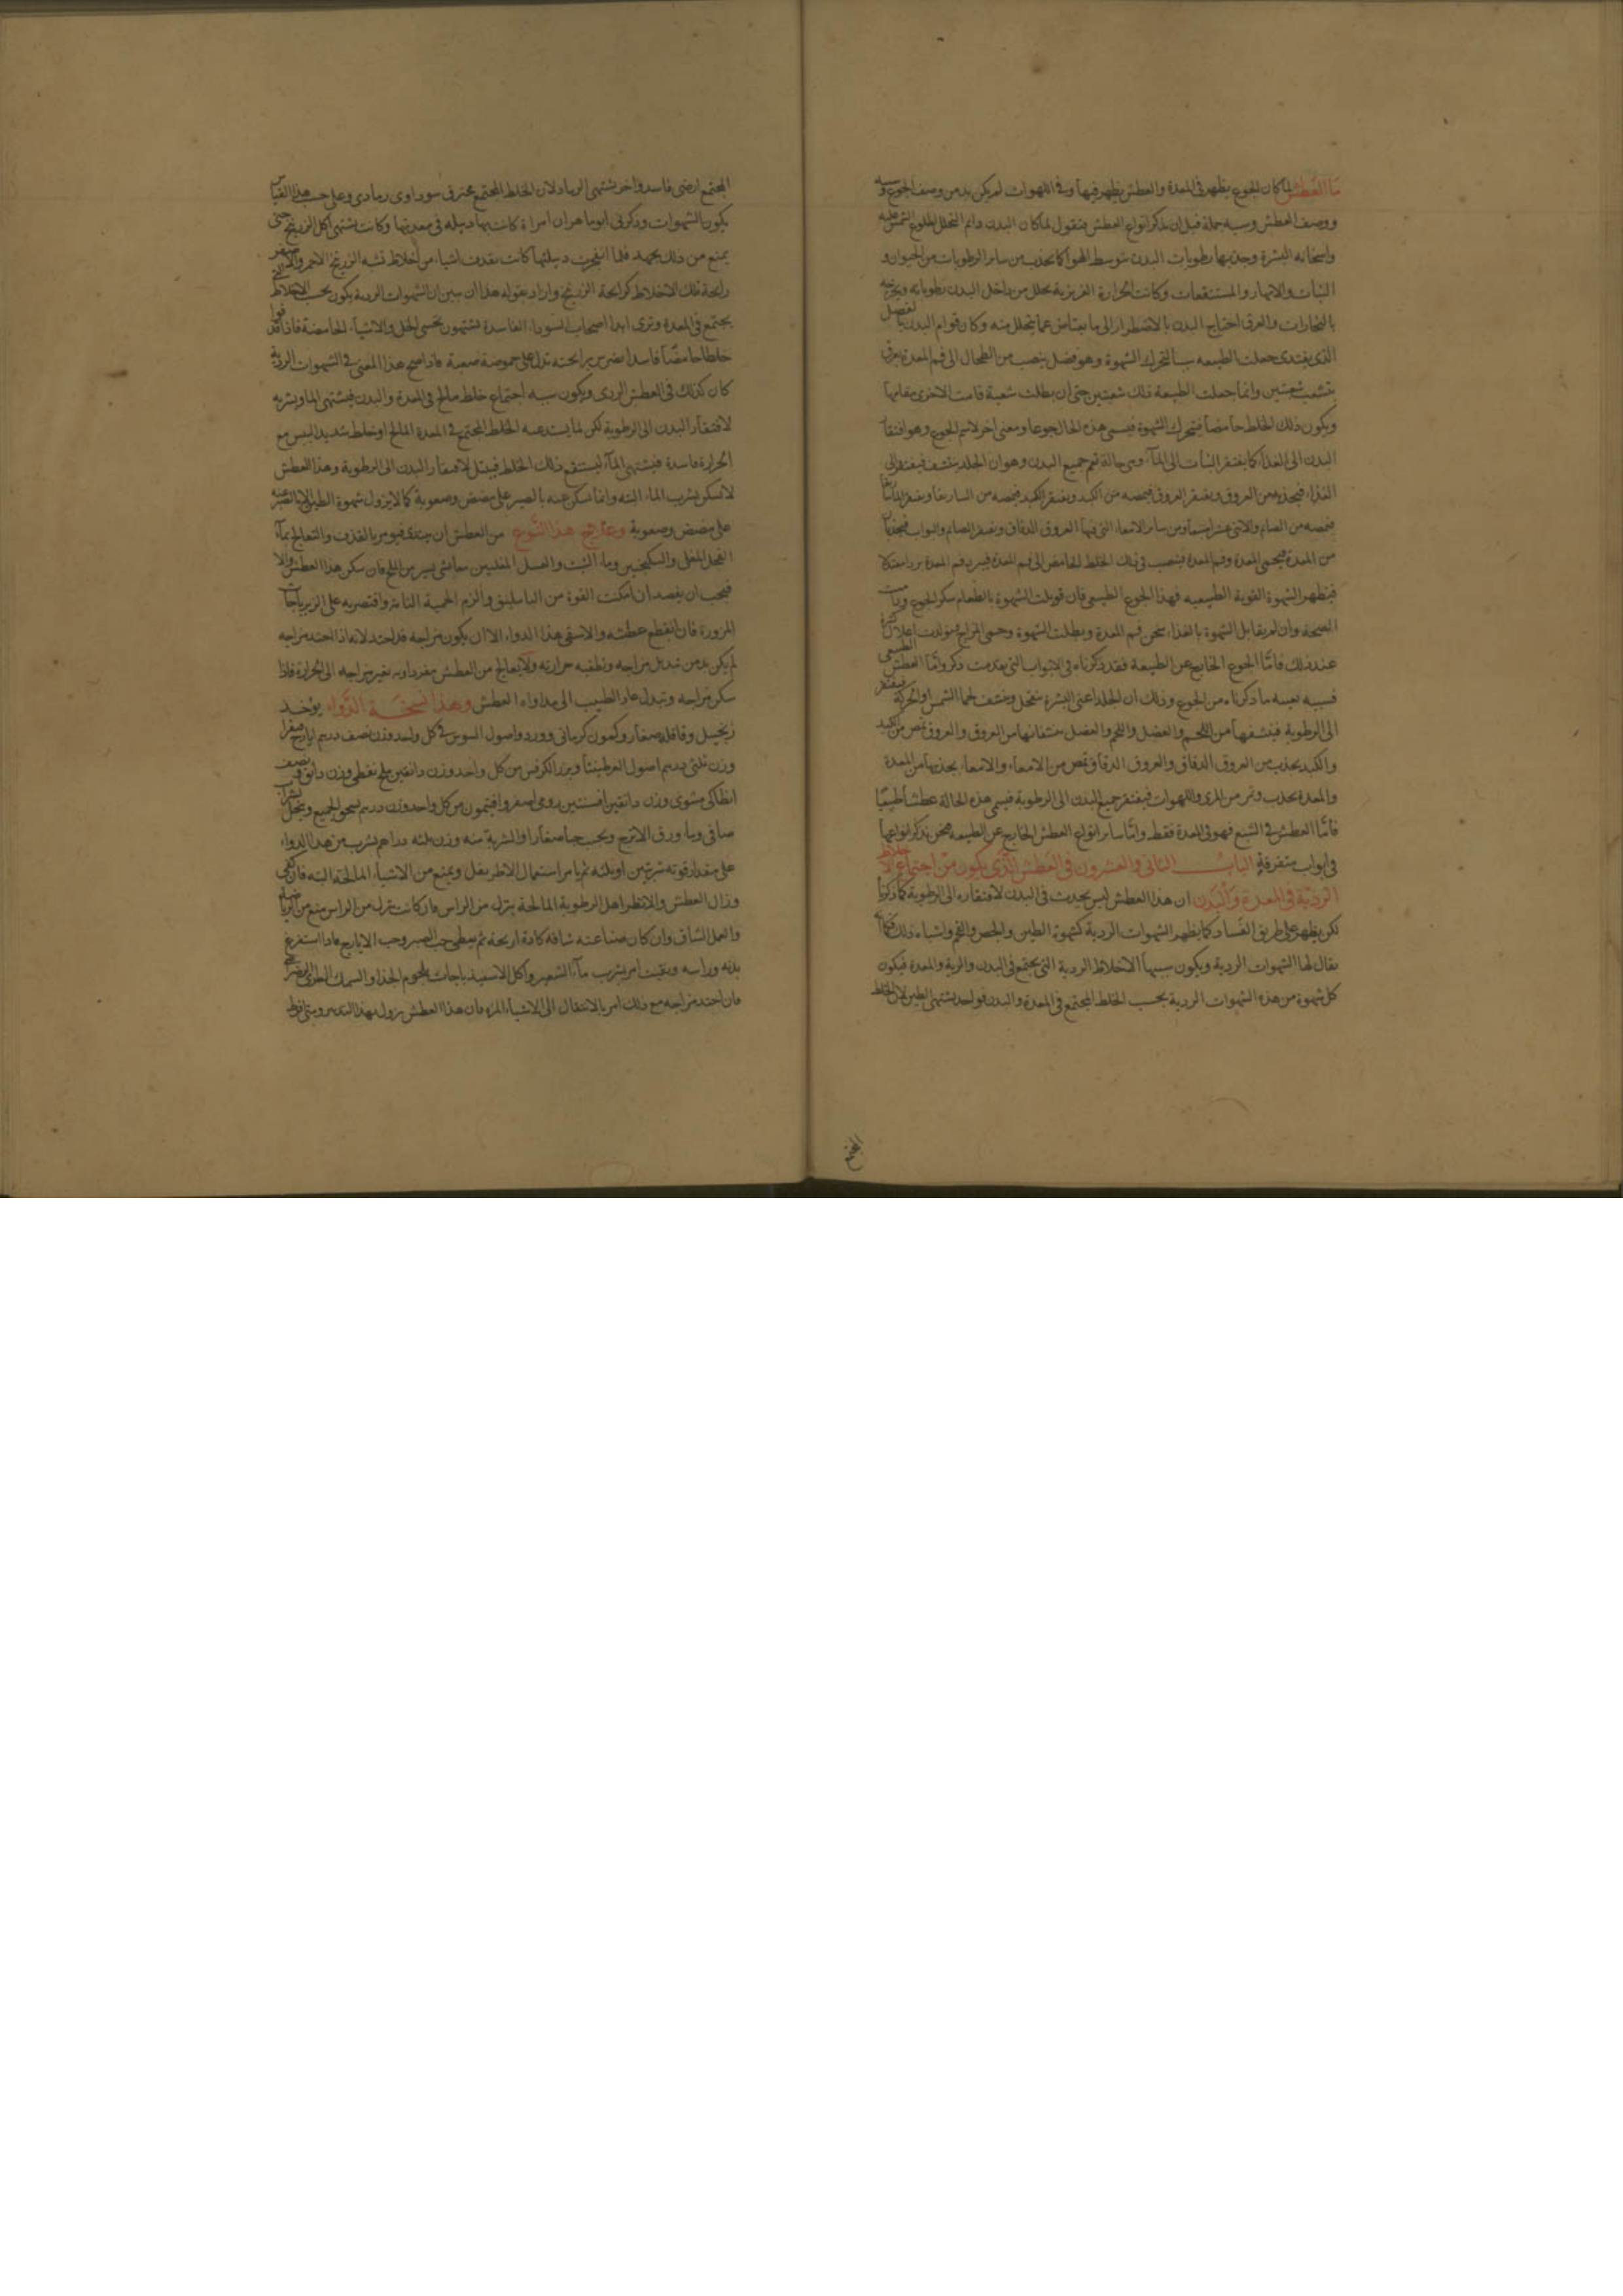 اما العطش لما كان الجوع يظهر في المعدة والعطش يظهر فيها وفي اللهوات لم يكن بد من وصف الجوع وسببه
ووصف العطش وسببه جملة قبل ان نذكر انواع العطش فنقول لما كان البدن دائم التحلل لطلوع الشمس عليه
واسخانه البشرة وجذبها رطوبات البدن بتوسط الهوا كما تجذب من ساير الرطوبات من الحيوان و
النبات والانهار والمستنقعات وكانت الحرارة الغريزية تحلل من داخل البدن رطوباته وتخرجه
بالبخارات والعرق احتاج البدن بالاضطرار الى ما يعتاض عما يتحلل منه وكان قوام البدن بالفضل
الذي يغتذى جعلت الطبيعه سببا لتحرك الشهوة وهو فضل ينصب من الطحال الى فم المعدة بعرق
يتشعب شعبتين وانما جعلت الطبيعة ذلك شعبتين حتى ان بطلت شعبة قامت الاخرى مقامها
ويكون ذلك الخلط حامضا فتتحرك الشهوة فيسمى هذه الحال جوعا ومعنى اخر لاسم الجوع وهو افتقار
البدن الى الغذا كما يفتقر النبات الى الماء وهي حالة تعم جميع البدن وهو ان الجلد ينتشف فيفتقر الى
الغذاء فيجذبه من العروق ويفتقر العروق فيمصه من الكبد ويفتقر الكبد فيمصه من الماساريقا ويفتقر الماساريقا
فيمصه من الصائم والاثنى عشر اصبعا ومن ساير الامعاء التي فيها العروق الدقاق ويفتقر الصائم والبواب فيجذبان
من المعدة فيحمى المعدة وفم المعدة فينصب في ذلك الخلط الحامض الى فم المعدة فيبرد فم المعدة بردا معتدلا
فيظهر الشهوة القوية الطبيعيه فهذا الجوع الطبيعي فان قوبلت الشهوة بالطعام سكن الجوع ودامت
الصحة وان لم يقابل الشهوة بالغذاء سخن فم المعدة وبطلت الشهوة وحمى المزاج وتولدت اعلال كثيرة
عند ذلك فاما الجوع الخارج عن الطبيعة فقد ذكرناه في الابواب التي تقدمت ذكر واما العطش الطبيعي
فسببه بعينه ما ذكرناه من الجوع وذلك ان الجلد اعني البشرة يتحلل وينشف لحما الشمس او الحركة فيفتقر
الى الرطوبة فينشفها من اللحم والعضل واللحم والعضل ينشفانها من العروق والعروق تمص من الكبد
والكبد يجذب من العروق الدقاق والعروق الدقاق تمص من الامعاء والامعاء يجذبها من المعدة
والمعدة تجذب وتمر من المري واللهوات فيفتقر جميع البدن الى الرطوبة فيسمى هذه الحالة عطشا طبيعيا
فاما العطش في الشبع فهو في المعدة فقط واما ساير انواع العطش الخارج عن الطبيعه فنحن نذكر انواعها
في ابواب متفرقة الباب الثاني والعشرون في العطش الذي يكون من اجتماع الاخلاط
الردية في المعدة والبدن ان هذا العطش ليس يحدث في البدن لافتقاره الى الرطوبة كما ذكرنا
لكن يظهر على طريق الفساد كما يظهر الشهوات الردية كشهوة الطين والجص والفحم واشباه ذلك فكما
يقال لها الشهوات الردية ويكون سببها الاخلاط الردية التي يجتمع في البدن والرية والمعدة فيكون
كل شهوة من هذه الشهوات الردية بحسب الخلط المجتمع في المعدة والبدن فواحد يشتهى الطين لان الخلط
المجتمع ارضي فاسد واخر يشتهى الرماد لان الخلط المجتمع محترق سوداوى رمادى وعلى حسب هذا القياس
يكون الشهوات وذكر لي ابو ماهر ان امراة كانت بها دبيلة في معدتها وكانت تشتهى اكل الزرنيخ حتى
يمنع من ذلك بجهد فلما انفجرت دبيلتها كانت تقذف اشياء من اخلاط تشبه الزرنيخ الاحمر والاصفر
رايحة تلك الاخلاط كرايحة الزرنيخ واراد بقوله هذا ان يبين ان الشهوات الردية يكون بحسب الاخلاط التي
يجتمع في المعدة وترى ابدا اصحاب السودا الفاسدة يشتهون تحسى الخل والاشياء الحامضة فاذا قذفوا
خلطا حامضا فاسدا يضرس برايحته تدل على حموضة صعبة فاذا صح هذا المعنى في الشهوات الردية
كان كذلك في العطش الردى ويكون سببه اجتماع خلط مالح في المعدة والبدن فيشتهى الما ويشربه
لا لافتقار البدن الى الرطوبة لكن لما يستدعيه الخلط المجتمع في المعدة المالح او خلط شديد اليبس مع
الحرارة فاسدة فيشتهى الماء ليستنقع ذلك الخلط فيبتل لا لافتقار البدن الى الرطوبة وهذا العطش
لا يسكن بشرب الماء البتة وانما يسكن عنه بالصبر على مضض وصعوبة كما لا يزول شهوة الطين الا بالصبر عنه
على مضض وصعوبة وعلاج هذا النوع من العطش ان يبتدى فيومر بالقذف والتعالج بماء
الفجل المغلى والسكنجبين وماء الشبث والعسل المغليين معا بشى يسير من الملح فان سكن هذا العطش والا
فيجب ان يفصد ان امكنت القوة من الباسليق والزم الحمية التامة واقتصر به على الزيرباجات
المزورة فان انقطع عطشه والا سقى هذا الدواء الا ان يكون مزاجه قد احتد لانه اذا احتد مزاجه
لم يكن بد من تبديل مزاجه وتطفيه حرارته ولا يعالج من العطش مفردا وبه تغير مزاجه الى الحرارة فاذا
سكن مزاجه وتبدل عاد الطبيب الى مداواة العطش وهذا نسخة الدواء يوخذ
زنجبيل وقاقلة صغار وكمون كرماني وورد واصول السوس من كل واحد وزن نصف درهم ايارج فيقرا
وزن ثلثي درهم اصول العرطنيثا وبزر الكرفس من كل واحد وزن دانقين ملح نفطي وزن دانق ونصف
انطاكى مشوى وزن دانقين افسنتين رومى اصفر وافتيمون من كل واحد وزن درهم يسحق الجميع وينخل بشراب
صافي وماء ورق الاترج ويحبب حبا صغارا والشربة منه وزن ثلثه دراهم يشرب من هذا الدواء
على مقدار قوته شربتين او ثلثه ثم يامر استعمال الاطريفل ويمنع من الاشياء المالحة البتة فان كفى
وزال العطش والا نظر اهل الرطوبة المالحة ينزل من الراس فان كانت تنزل من الراس منع من
والعمل الشاق وان كان صناعته شاقه كادة اريحه ثم يعطى حب الصبر وحب الايارج فاذا استفرغ
بدنه وراسه ونقيت امر بشرب ماء الشعير واكل الاسفيدباجات بلحوم الجدا والسمك الطرى
فان احتد مزاجه مع ذلك امر بالانتقال الى الاشياء المزة فان هذا العطش يزول بهذا التدبير
المجتمع